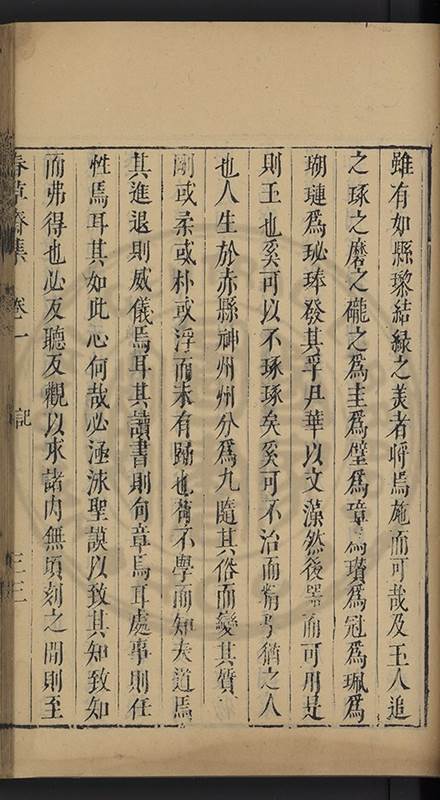 雖有如縣黎結綠之美者將焉施而可哉及玉人追
之琢之磨之礲之爲圭爲璧爲璋爲瓚爲冠爲珮爲
瑚璉爲珌琫發其孚尹華以文藻然後器而可用是
則玉也奚可以不琢琢矣奚可不治而精乎猶之人
也人生於赤縣神州州分爲九隨其俗而變其質
剛或柔或朴或浮而未有歸也苟不學而知夫道焉
其進退則威儀焉耳其讀書則句章焉耳處事則任
性焉耳其如此心何哉必涵泳聖謨以致其知致知
而弗得也必反聽反觀以求諸内無頃刻之間則至
春草齋集 卷一 記 三三